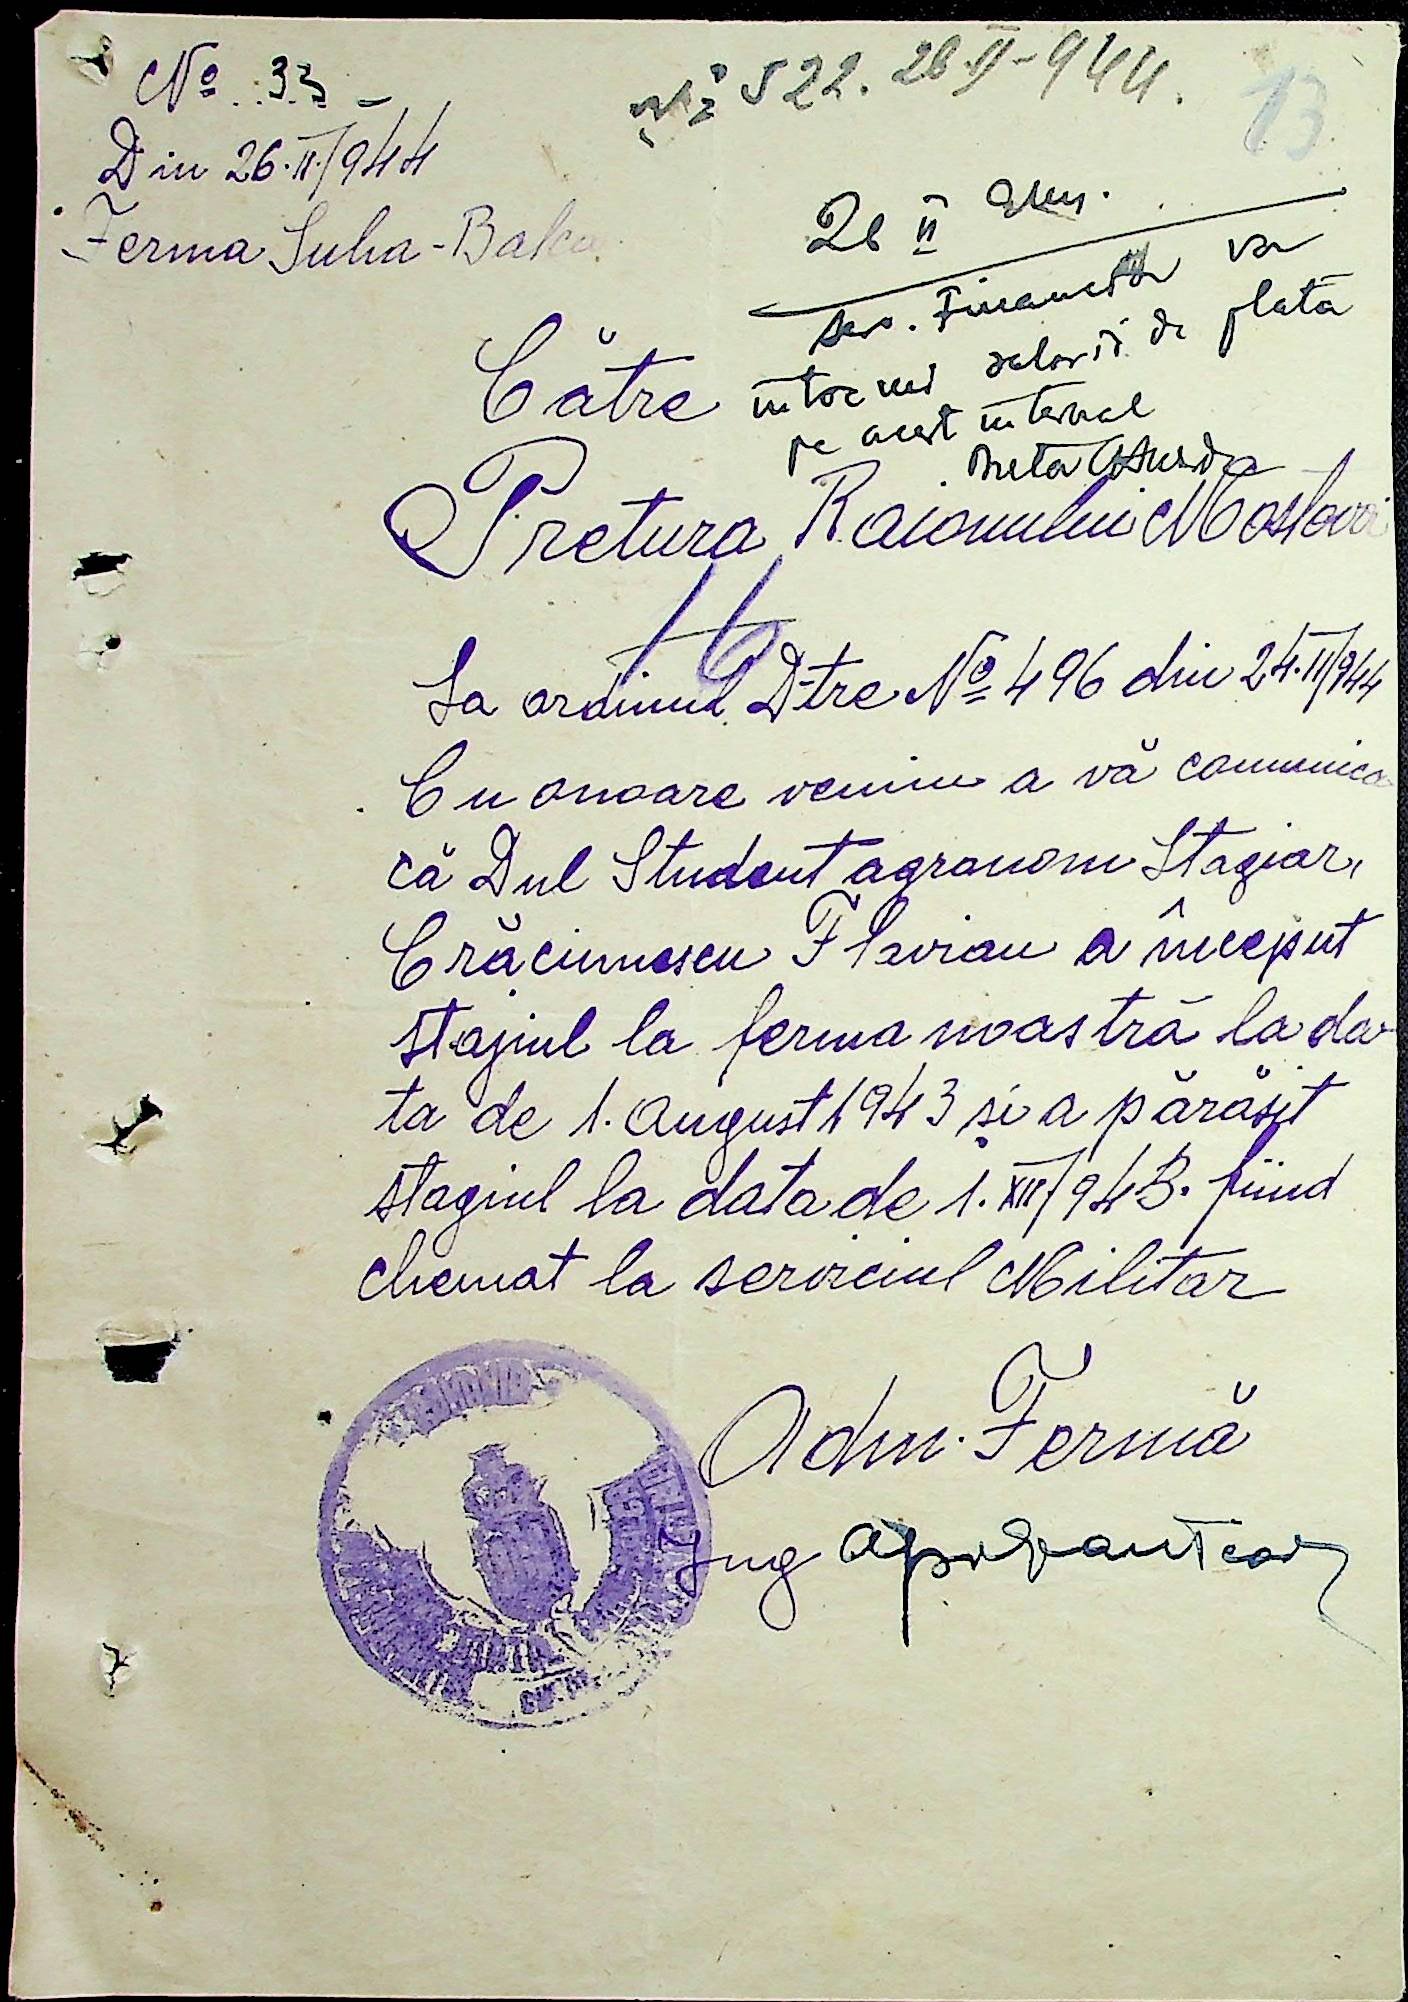 Nº 33 -
Din 26.II./944
Ferma Suha-Balca
Nº 522. 28.II-944.
13
28 II
serv. Financiar va
întocmi salorii de plata
pe acest interval
Către
Pretura Raionului Mostovoi
La ordinul D-tre Nº 496 din 24.II/944
Cu onoare venim a vă comunica
că Dul Student agronom Stagiar,
Crăciunescu Flavian a început
stajiul la ferma noastră la da-
ta de 1. August 1943 și a părăsit
stagiul la data de 1.XII/943. fiind
chemat la serviciul Militar
Adm. Fermă
Ing